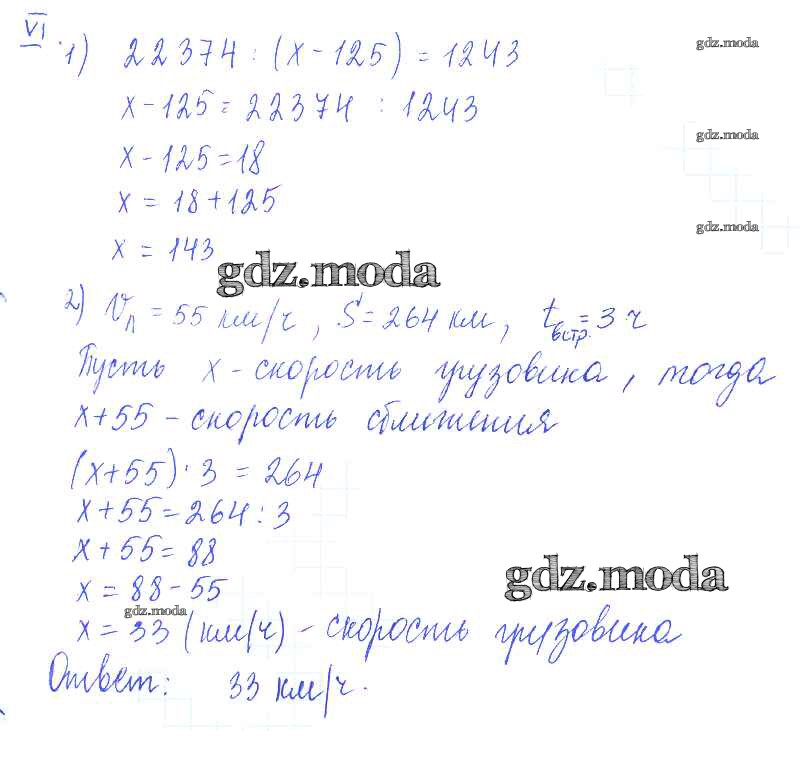 VI. 1) 22374 : (x - 125) = 1243
gdz.moda
x - 125 = 22374 : 1243
gdz.moda
x - 125 = 18
x = 18 + 125
gdz.moda
x = 143
gdz.moda
2) Vп = 55 км/ч, S = 264 км, tвстр. = 3 ч
Пусть x - скорость грузовика, тогда
x+55 - скорость сближения
(x+55) · 3 = 264
x+55 = 264 : 3
x + 55 = 88
gdz.moda
x = 88 - 55
gdz.moda
x = 33 (км/ч) - скорость грузовика
Ответ: 33 км/ч.